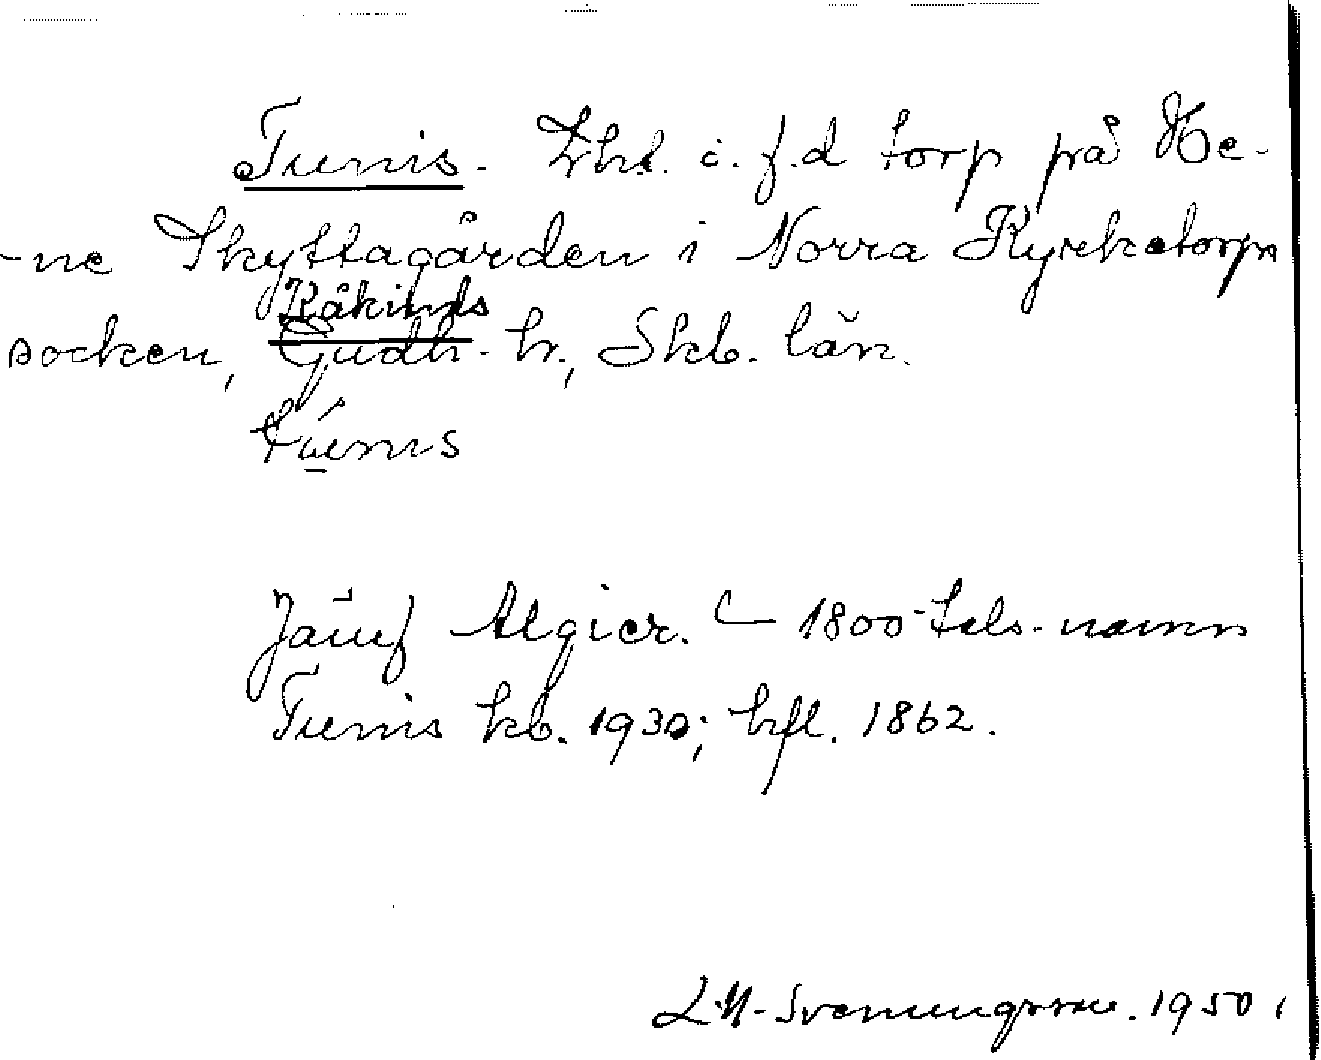 Tunis. Lht. i. f.d torp på He-
-ne Skyttagården i Norra Kyrketorps
Kåkinds
socken, Gudh. hr., Skb. län.
Jämf Algier. 1800-tals-namn
Tunis kb. 1930; hfl. 1862.
1950